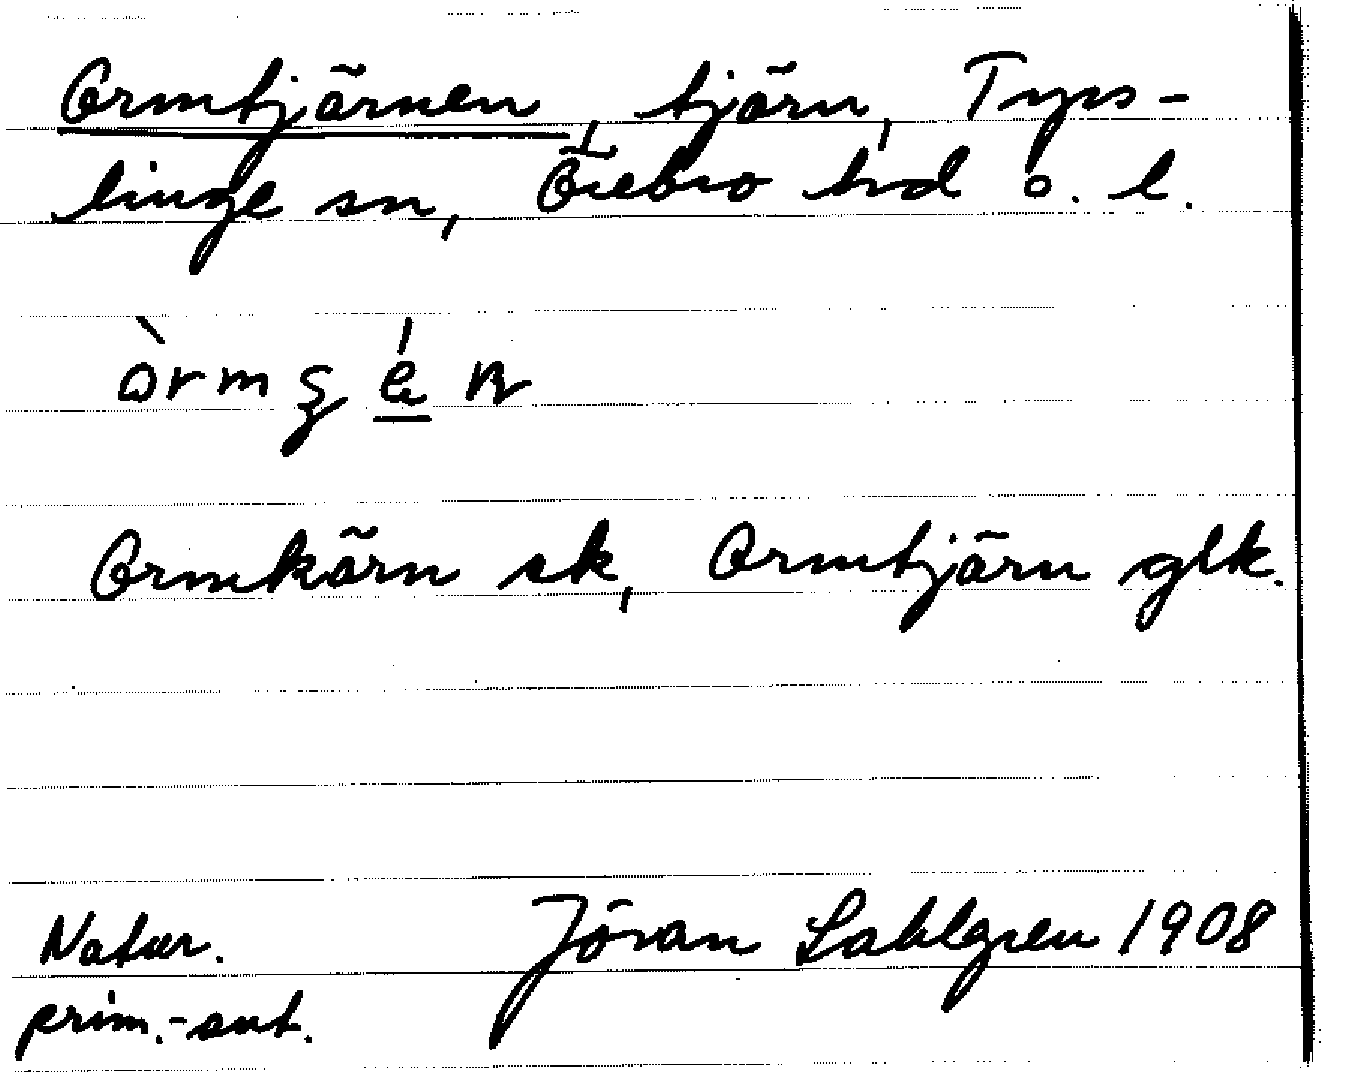 Ormtjärnen, tjärn, Tys-
linge sn, Örebro hd ö. l.
Ormkärn sk, Ormtjärn glk.
Natur. Jöran Sahlgren 1908
prim.-ant.